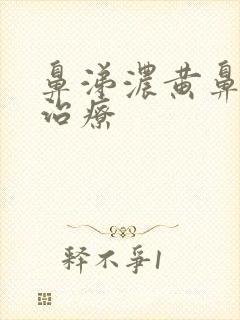 鼻涕濃黃鼻
治療
释不爭1